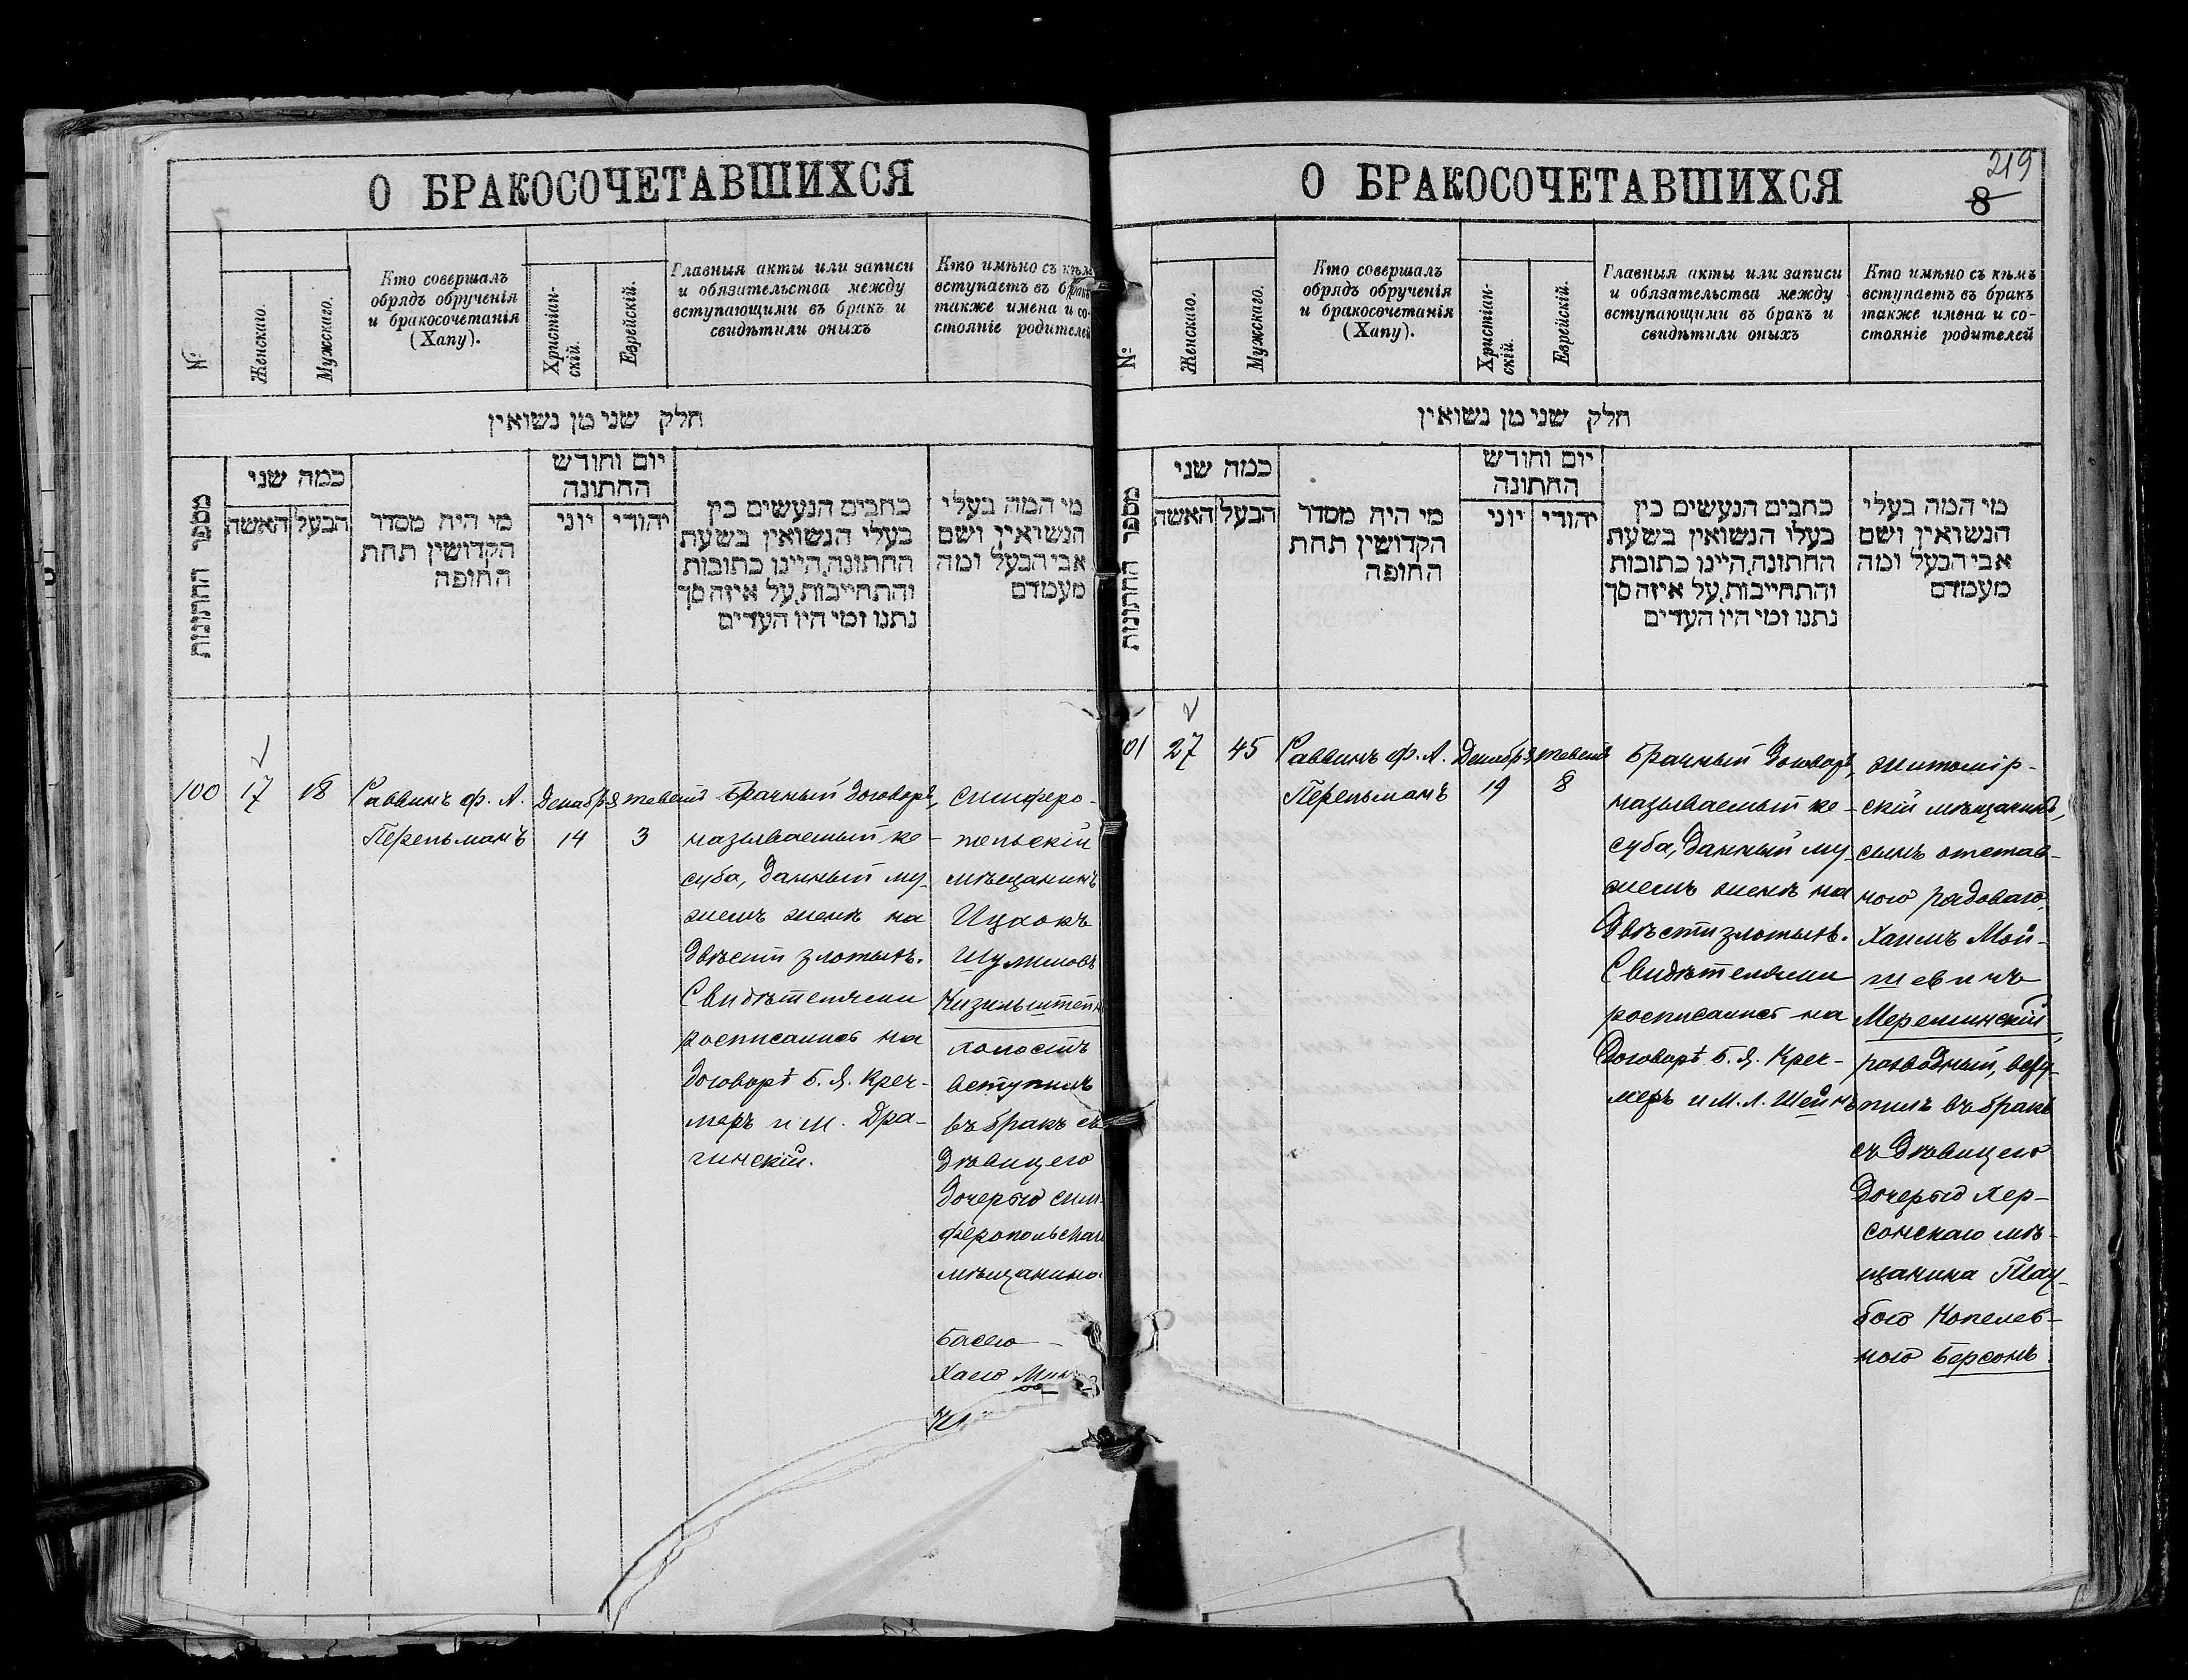 О БРАКОСОЧЕТАВШИХСЯ
№
Женскаго.
Мужескаго.
Кто совершалъ
обрядъ обрученія
и бракосочетанія
(Хапу).
Христіан-
скій.
Еврейскій.
Главныя акты или записи
и обязательства между
вступающими въ бракъ и
свидѣтили оныхъ
Кто имѣно съ кѣмъ
вступаетъ въ бракъ
также имена и со-
стояніе родителей
חלק שני מן נשואין
מספר החתונות
כמה שני
האשה
הבעל
מי היה מסדר
הקדושין תחת
החופה
יום וחודש
החתונה
יוני
יהודי
כתבים הנעשים בין
בעלי הנשואין בשעת
החתונה, היינו כתובות
והתחייבות, על איזה סך
נתנו ומי היו העדים
מי המה בעלי
הנשואין ושם
אבי הבעל ומה
מעמדם
100
17
18
Раввинъ Ф. А.
Перельманъ
Декабря
14
тевеѳъ
3
Брачный договоръ,
называемый ке-
суба, данный му-
жемъ женѣ на
двѣсти злотыхъ.
Свидѣтелями
росписались на
договорѣ Б. Я. Креч-
меръ и М. Дра-
гинскій.
Симферо-
польскій
мѣщанинъ
Ицхокъ
Шулимовъ
Кизильштейнъ
холостъ
вступилъ
въ бракъ съ
дѣвицею
дочерью сим-
феропольскаго
мѣщанина
Басею-
Хаею
О БРАКОСОЧЕТАВШИХСЯ
219
8
№
Женскаго.
Мужскаго.
Кто совершалъ
обрядъ обрученія
и бракосочетанія
(Хапу).
Христіан-
скій.
Еврейскій.
Главныя акты или записи
и обязательства между
вступающими въ бракъ и
свидѣтили оныхъ
Кто имѣно съ кѣмъ
вступаетъ въ бракъ
также имена и со-
стояніе родителей
חלק שני מן נשואין
מספר החתונות
כמה שני
האשה
הבעל
מי היה מסדר
הקדושין תחת
החופה
יום וחודש
החתונה
יוני
יהודי
כתבים הנעשים בין
בעלי הנשואין בשעת
החתונה, היינו כתובות
והתחייבות, על איזה סך
נתנו ומי היו העדים
מי המה בעלי
הנשואין ושם
אבי הבעל ומה
מעמדם
101
27
45
Раввинъ Ф. А.
Перельманъ
Декабря
19
тевеѳъ
8
Брачный договоръ,
называемый ке-
суба, данный му-
жемъ женѣ на
двѣсти злотыхъ.
Свидѣтелями
росписались на
договорѣ Б. Я. Креч-
меръ и М. Л. Шейнъ
Житомір-
скій мѣщанинъ,
сынъ отстав-
ного рядового,
Хаимъ Мой-
шевичъ
Мереминскій,
разводный, всту-
пилъ въ бракъ
съ дѣвицею
дочерью Хер-
сонскаго мѣ-
щанина Тау-
бою Копелев-
ною Берсонъ